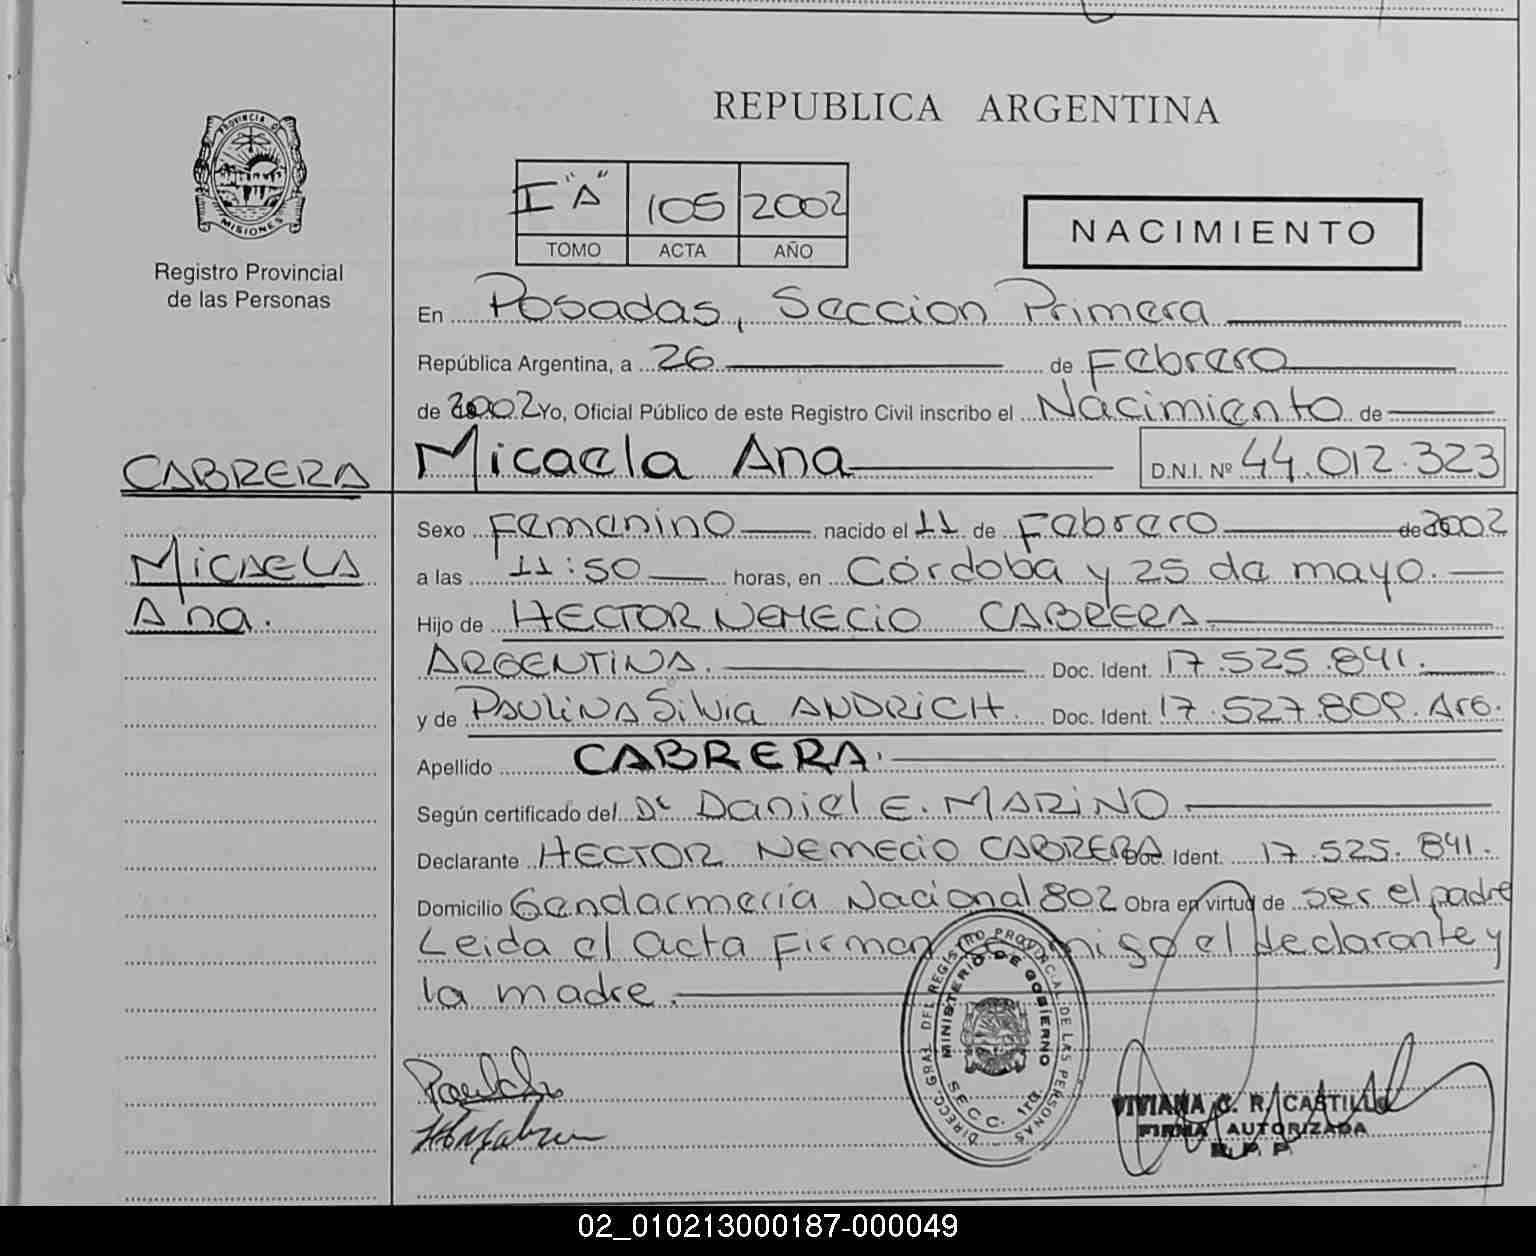 REPUBLICA ARGENTINA
PROVINCIA D
MISIONES
Registro Provincial
de las Personas
I "A" 105 2002
TOMO ACTA AÑO
NACIMIENTO
En Posadas, Seccion Primera
República Argentina, a 26 de Febrero
de 2002 Yo, Oficial Público de este Registro Civil inscribo el Nacimiento de
CABRERA
Micaela Ana
Micaela Ana D.N.I. Nº 44.012.323
Sexo Femenino nacido el 11 de Febrero de 2002
a las 11:50 horas, en Córdoba y 25 de mayo.
Hijo de HECTOR NEMECIO CABRERA
ARGENTINA. Doc. Ident. 17.525.841.
y de PAULINA Silvia ANDRICH. Doc. Ident. 17.527.809. Arg.
Apellido CABRERA.
Según certificado del Dr Daniel E. MARINO
Declarante HECTOR NEMECIO CABRERA Doc Ident. 17.525.841.
Domicilio Gendarmería Nacional 802 Obra en virtud de ser el padre
Leida el acta Firman el declarante y
la madre.
DIRECC. GRAL. DEL REGISTRO PROVINCIAL DE LAS PERSONAS
MINISTERIO DE GOBIERNO
SECC. 1ra.
VIVIANA C. R. CASTILLO
FIRMA AUTORIZADA
R. P. P.
02_010213000187-000049